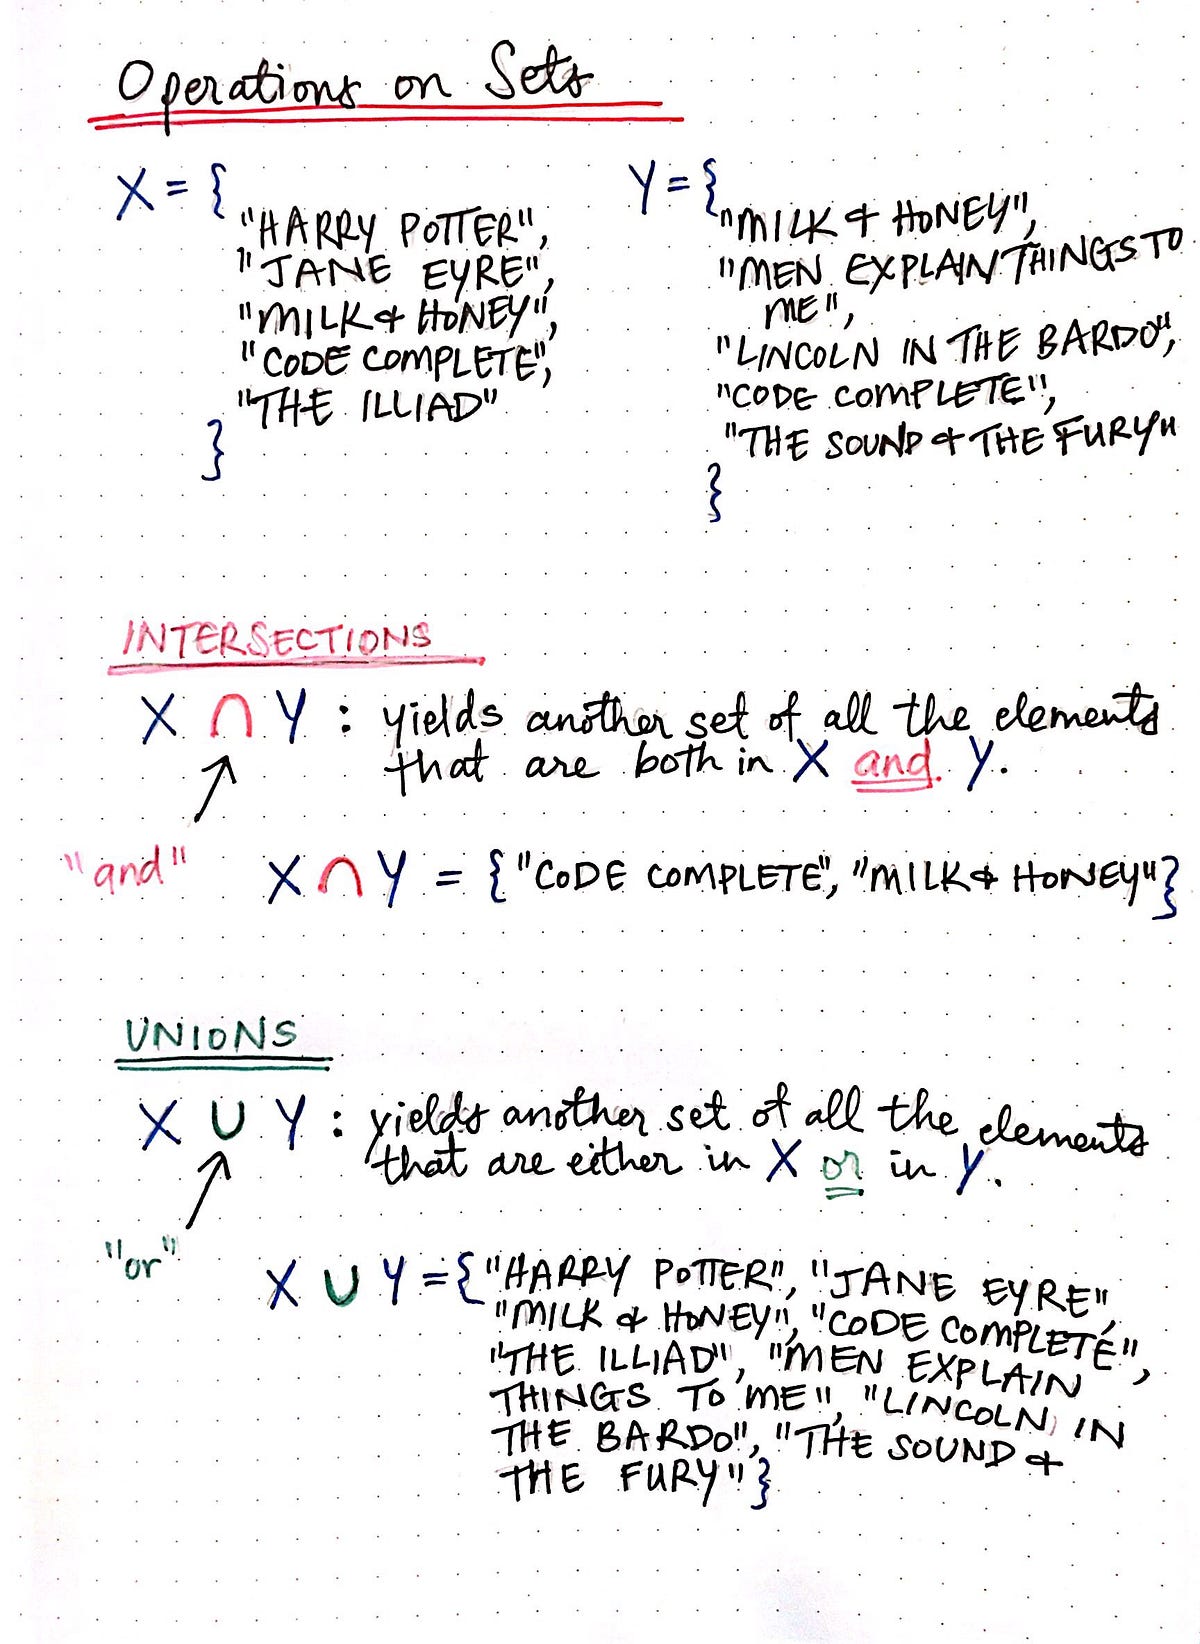 Operations on Sets
X = {
"HARRY POTTER",
"JANE EYRE",
"MILK & HONEY",
"CODE COMPLETE",
"THE ILLIAD"
}
Y = {
"MILK & HONEY",
"MEN EXPLAIN THINGS TO
ME",
"LINCOLN IN THE BARDO",
"CODE COMPLETE",
"THE SOUND & THE FURY"
}
INTERSECTIONS
X ∩ Y : yields another set of all the elements
that are both in X and Y.
"and"
X ∩ Y = {"CODE COMPLETE", "MILK & HONEY"}
UNIONS
X ∪ Y : yields another set of all the elements
that are either in X or in Y.
"or"
X ∪ Y = {"HARRY POTTER", "JANE EYRE",
"MILK & HONEY", "CODE COMPLETE",
"THE ILLIAD", "MEN EXPLAIN
THINGS TO ME", "LINCOLN IN
THE BARDO", "THE SOUND &
THE FURY"}